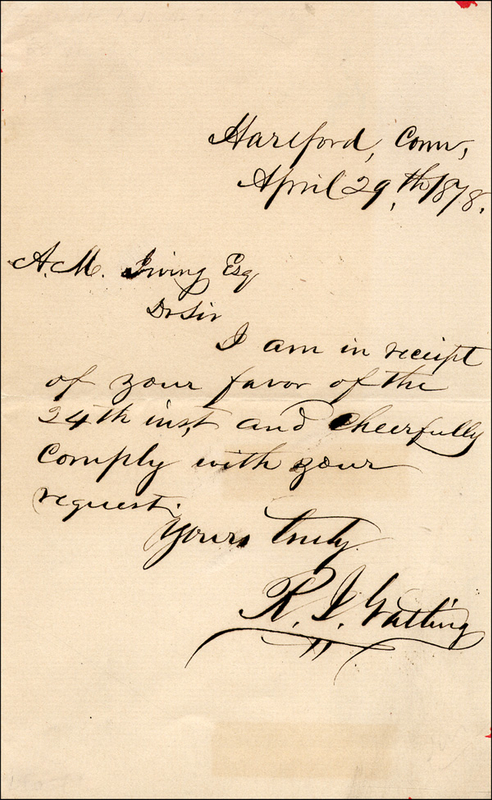 Hartford, Conn,
April 29,th 1878.
A. M. Irving Esq
Dr Sir
I am in receipt
of your favor of the
24th inst, and cheerfully
comply with your
request.
Yours truly
R. J. Gatling